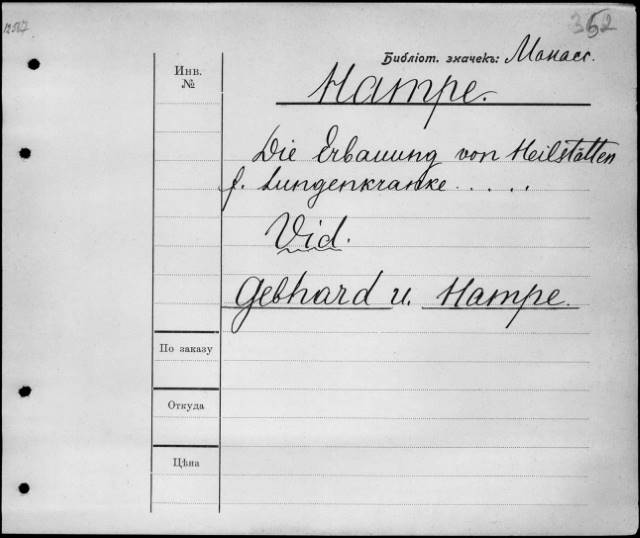 352
Библіот. значекъ: Монасс.
Инв.
№
Hampe.
Die Erbauung von Heilstätten
f. Lungenkranke.....
Vid.
Gebhard u. Hampe.
По заказу
Откуда
Цѣна